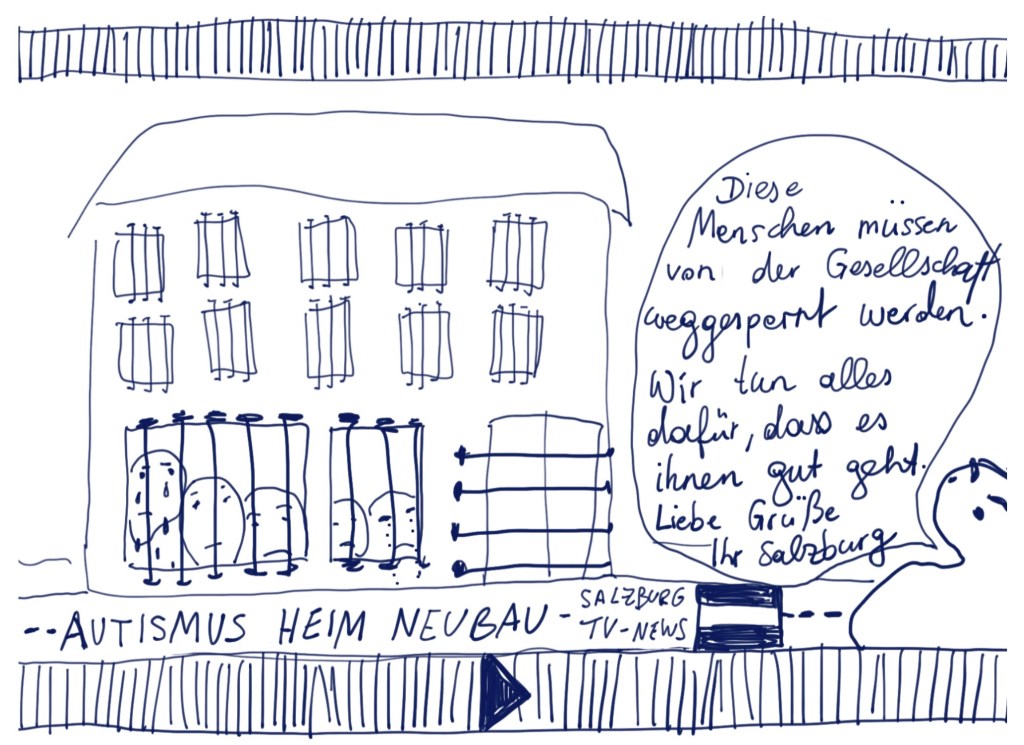 Diese
Menschen müssen
von der Gesellschaft
weggesperrt werden.
Wir tun alles
dafür, dass es
ihnen gut geht.
Liebe Grüße
Ihr Salzburg
--AUTISMUS HEIM NEUBAU-
SALZBURG
TV-NEWS